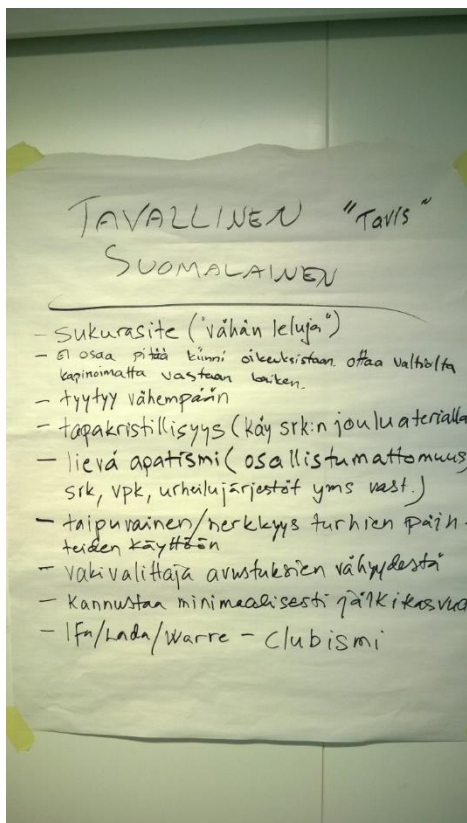 TAVALLINEN "Tavis"
SUOMALAINEN
- sukurasite ("vähän leluja")
- Ei osaa pitää kiinni oikeuksistaan, ottaa valtiolta
kapinoimatta vastaan kaiken.
- tyytyy vähempään
- tapakristillisyys (käy srk:n jouluaterialla
- lievä apatismi (osallistumattomuus
srk, vpk, urheilujärjestöt yms vast.)
- taipuvainen/herkkyys turhien päih-
teiden käyttöön
- vakivalittaja avustuksien vähyydestä
- kannustaa minimaalisesti jälkikasvua
- Ifa/Lada/Warre - clubismi